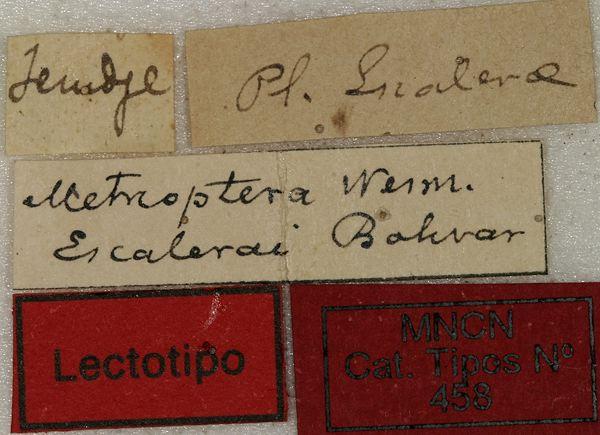 Pl. Escalerae
Metrioptera Wesm.
Escalerai Bolivar
Lectotipo
MNCN
Cat. Tipos Nº
458